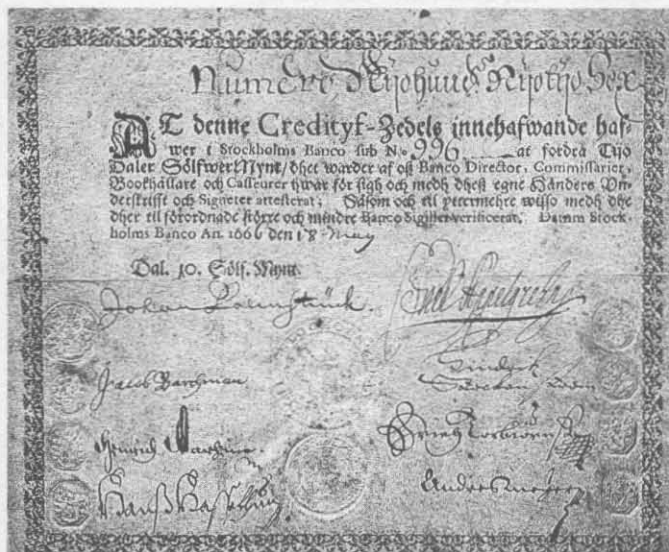 Numero Nijohund Nijotijo Sex
AT denne Credityf-Zedels innehafwande haf-
wer i Stockholms Banco sub N.o 996 at fordra Tijo
Daler SölfwerMynt / dhet warder af oß Banco Director, Commissarier,
Bookhållare och Casseurer hwar för sigh och medh dheß egne Händers Vn-
derskrifft och Signeter attesterat; Såsom och til yttermehre wisso medh dhe
dher til förordnade större och mindre Banco Signeter verificerat. Datum Stock-
holms Banco An. 1666 den 18 May
Dal. 10. Sölf. Mynt.
Johan Palmstruck.
Jacob Barchman
Hinrich
Hanß
Anders